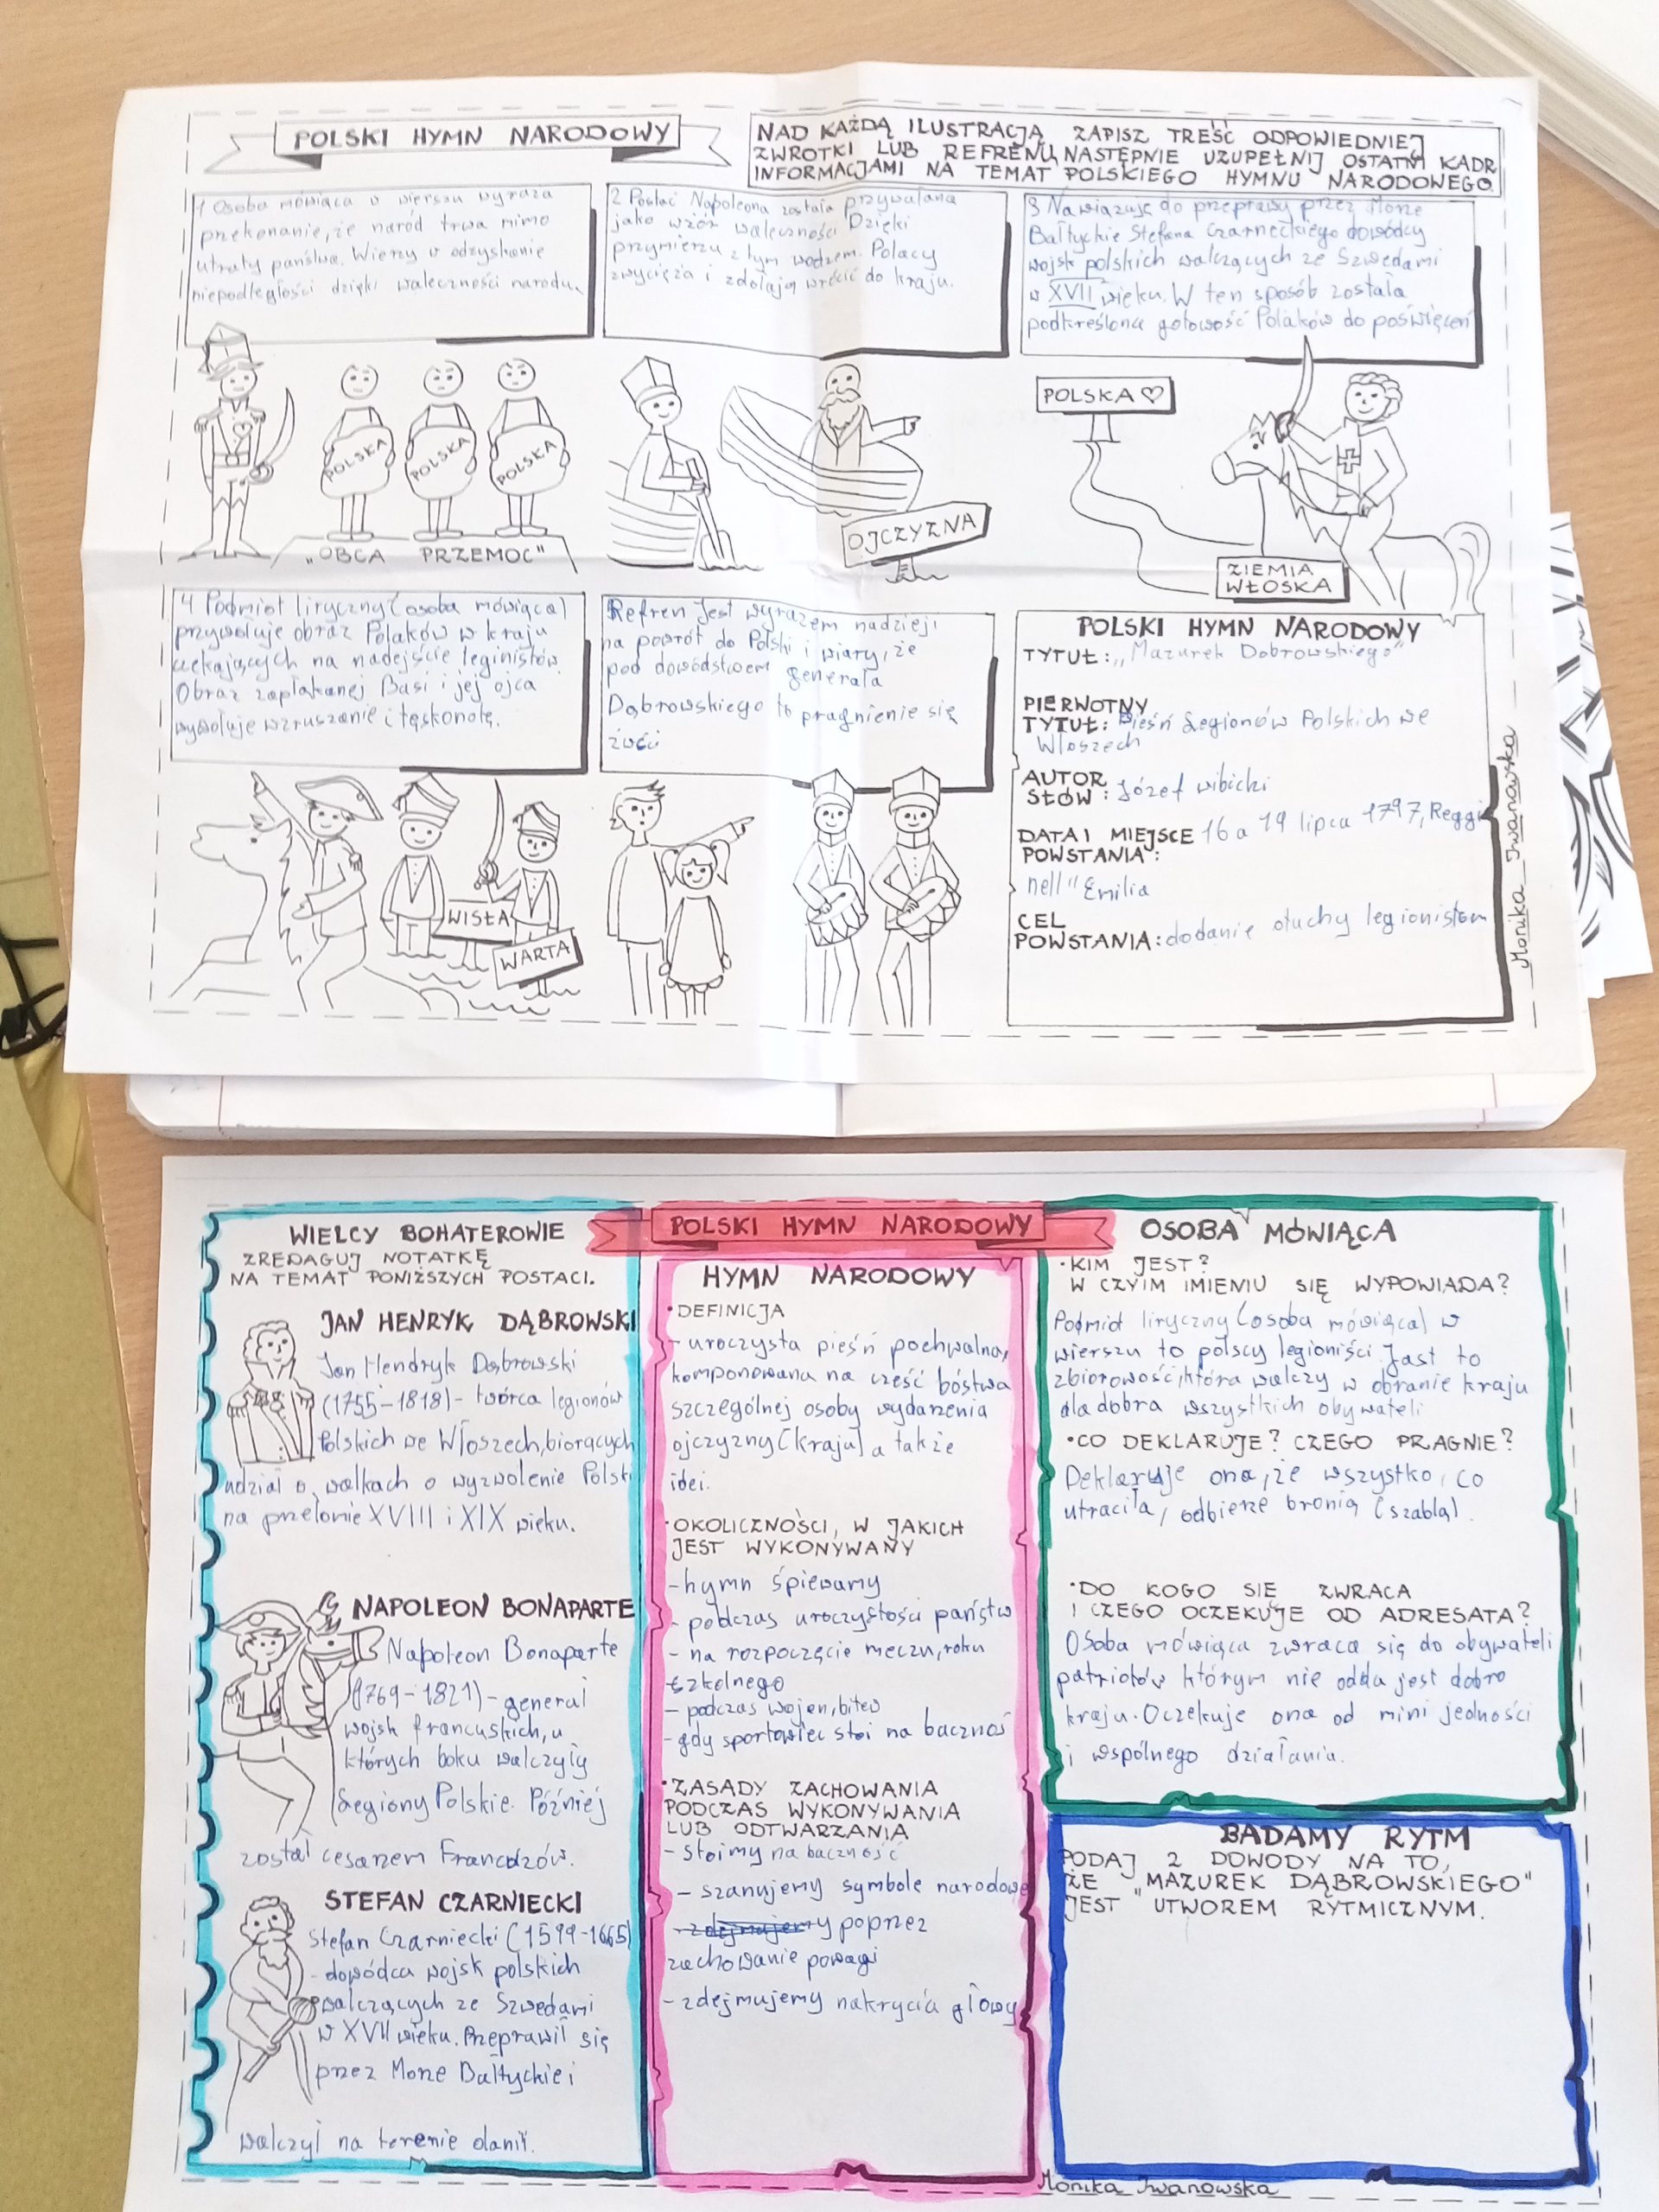 POLSKI HYMN NARODOWY
NAD KAŻDĄ ILUSTRACJĄ ZAPISZ TREŚĆ ODPOWIEDNIEJ
ZWROTKI LUB REFRENU, NASTĘPNIE UZUPEŁNIJ OSTATNI KADR
INFORMACJAMI NA TEMAT POLSKIEGO HYMNU NARODOWEGO
1 Osoba mówiąca w wierszu wyraża
przekonanie, że naród trwa mimo
utraty państwa. Wierzy w odzyskanie
niepodległości dzięki waleczności narodu.
2 Postać Napoleona została przywołana
jako wzór waleczności Dzięki
przymierzu z tym wodzem. Polacy
zwyciężą i zdołają wrócić do kraju.
3 Nawiązuję do przeprawy przez Morze
Bałtyckie Stefana Czarneckiego dowódcy
wojsk polskich walczących ze Szwedami
w XVII wieku. W ten sposób została
podkreślona gotowość Polaków do poświęceń
POLSKA
POLSKA
POLSKA
"OBCA PRZEMOC"
OJCZYZNA
POLSKA ♡
ZIEMIA
WŁOSKA
4 Podmiot liryczny (osoba mówiąca)
przywołuje obraz Polaków w kraju
czekających na nadejście leginistów.
Obraz zapłakanej Basi i jej ojca
wywołuje wzruszenie i tęsknotę.
Refren jest wyrazem nadzieji
na powrót do Polski i wiary, że
pod dowództwem generała
Dąbrowskiego to pragnienie się
ziści
WISŁA
WARTA
POLSKI HYMN NARODOWY
TYTUŁ: „Mazurek Dobrowskiego"
PIERWOTNY
TYTUŁ: Pieśń Legionów Polskich we
Włoszech
AUTOR
SŁÓW: Józef wibicki
DATA I MIEJSCE 16 a 19 lipca 1797, Reggi
POWSTANIA:
nell" Emilia
CEL
POWSTANIA: dodanie otuchy legionistom
Monika Iwanowska
WIELCY BOHATEROWIE
ZREDAGUJ NOTATKĘ
NA TEMAT PONIŻSZYCH POSTACI.
JAN HENRYK DĄBROWSKI
Jan Hendryk Dąbrowski
(1755-1818) - twórca legionów
Polskich we Włoszech, biorących
udział o walkach o wyzwolenie Polski
na przełomie XVIII i XIX wieku.
NAPOLEON BONAPARTE
Napoleon Bonaparte
(1769-1821) - generał
wojsk francuskich, u
których boku walczyły
Legiony Polskie. Później
został cesarzem Francózów.
STEFAN CZARNIECKI
Stefan Czarniecki (1599-1665)
- dowódca wojsk polskich
walczących ze Szwedami
w XVII wieku. Przeprawił się
przez Morze Bałtyckie i
walczył na terenie danii.
POLSKI HYMN NARODOWY
HYMN NARODOWY
• DEFINICJA
- uroczysta pieśń pochwalna,
komponowana na cześć bóstwa
szczególnej osoby wydarzenia
ojczyzny (kraju) a także
idei.
• OKOLICZNOŚCI, W JAKICH
JEST WYKONYWANY
- hymn śpiewamy
- podczas uroczystości państw
- na rozpoczęcie meczu, roku
szkolnego
- podczas wojen, bitew
- gdy sportowiec stoi na baczność
• ZASADY ZACHOWANIA
PODCZAS WYKONYWANIA
LUB ODTWARZANIA
- stoimy na baczność
- szanujemy symbole narodowe
- zdejmujemy poprzez
zachowanie powagi
- zdejmujemy nakrycia głowy
OSOBA MÓWIĄCA
• KIM JEST?
W CZYIM IMIENIU SIĘ WYPOWIADA?
Podmiot liryczny (osoba mówiąca) w
wierszu to polscy legioniści. Jast to
zbiorowość, która walczy w obranie kraju
dla dobra wszystkich obywateli
• CO DEKLARUJE? CZEGO PRAGNIE?
Deklaruje ona, że wszystko, co
utraciła, odbierze bronią (szablą).
• DO KOGO SIĘ ZWRACA
I CZEGO OCZEKUJE OD ADRESATA?
Osoba mówiąca zwraca się do obywateli
patriotów którym nie odda jest dobro
kraju. Oczekuje ona od mini jedności
i wspólnego działania.
BADAMY RYTM
PODAJ 2 DOWODY NA TO,
ŻE "MAZUREK DĄBROWSKIEGO"
JEST UTWOREM RYTMICZNYM.
Monika Iwanowska